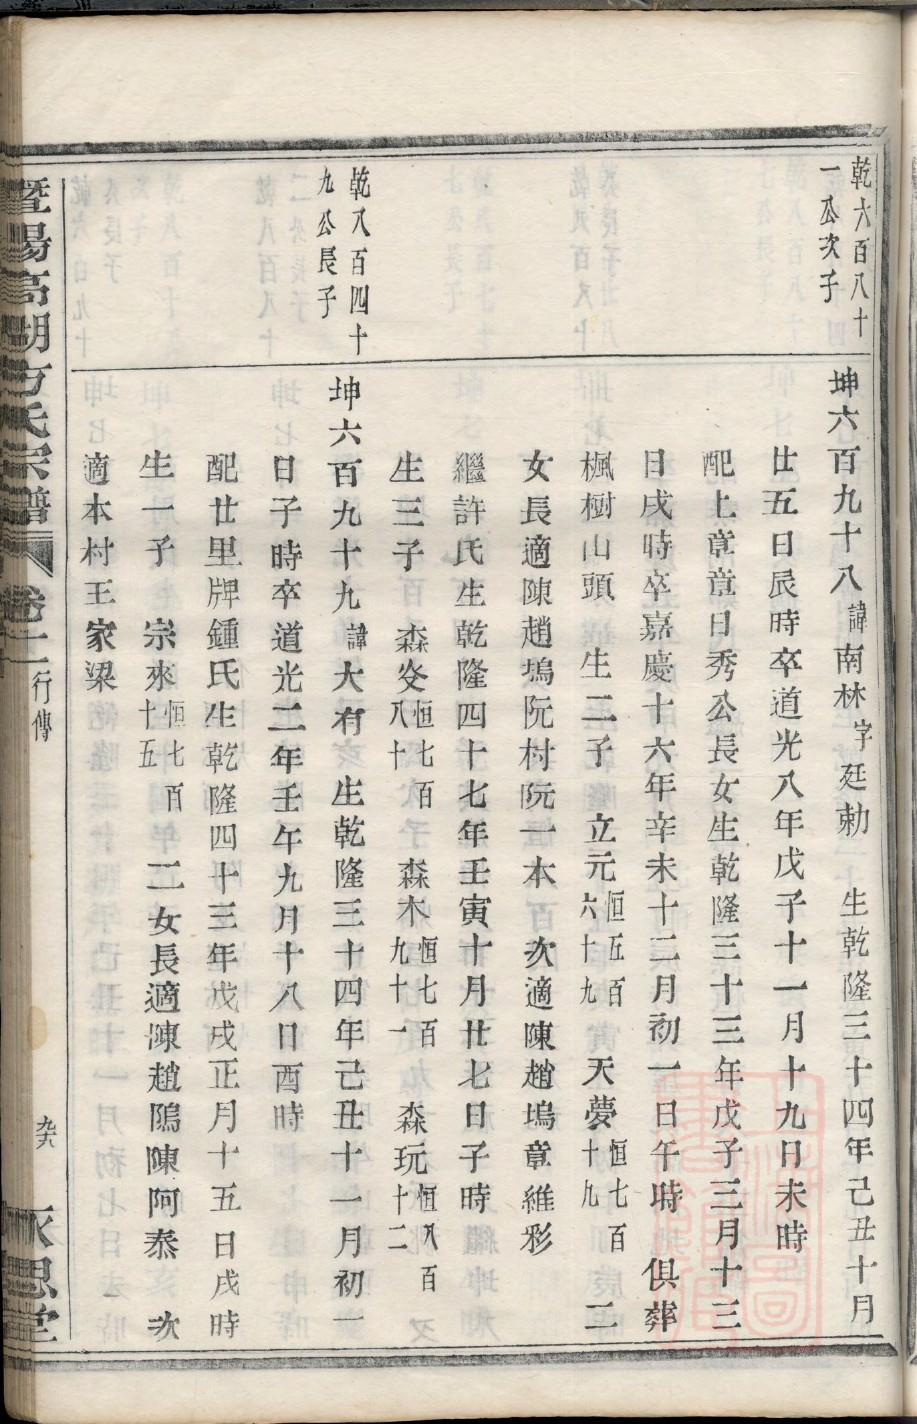 乾六百八十
一公次子
坤六百九十八諱南林字廷勅 生乾隆三十四年己丑十月
廿五日辰時卒道光八年戊子十一月十九日未時
配上章章日秀公長女生乾隆三十三年戊子三月十三
日戌時卒嘉慶十六年辛未十二月初一日午時 俱葬
楓樹山頭 生二子 立元恒五百六十九 天夢恒七百十九 二
女長適陳趙塢阮村阮一本 次適陳趙塢章維彩
繼許氏生乾隆四十七年壬寅十月廿七日子時
生三子 森炎恒七百八十 森木恒七百九十一 森玩恒八百十二
乾八百四十
九公長子
坤六百九十九諱大有 生乾隆三十四年己丑十一月初一
日子時卒道光二年壬午九月十八日酉時
配廿里牌鍾氏生乾隆四十三年戊戌正月十五日戌時
生一子 宗來恒七百十五 二女長適陳趙隖陳阿泰 次
適本村王家梁
暨陽高湖方氏宗譜 卷二 行傳 九六 永思堂